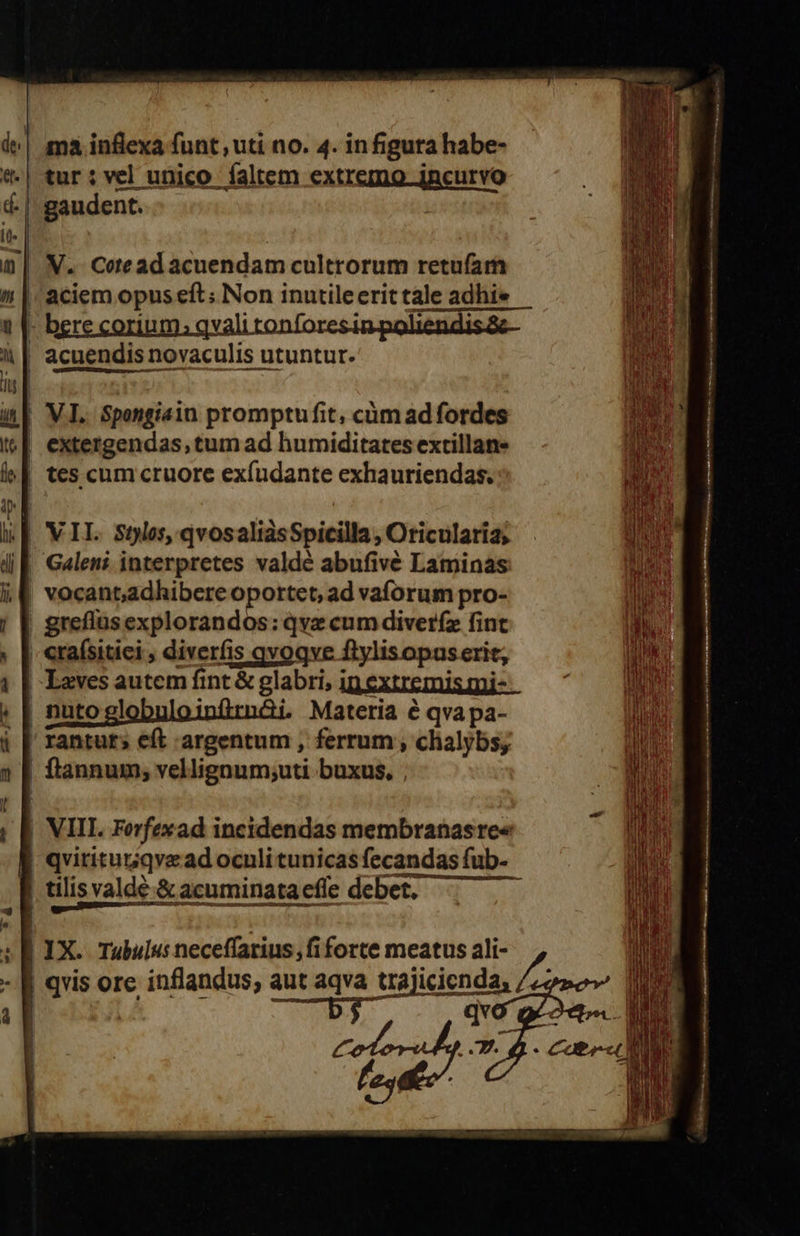 ma inflexa ſunt, uti no. 4. in figura habe-
tur : vel unico ſaltem extremo incurvo
gaudent.
V. Cote ad acuendam cultrorum retuſam
aciem opus eſt; Non inutile erit tale adhi-
bere corium, qvali tonſores in poliendis &
acuendis novaculis utuntur.
VI. Spongia in promptu ſit, cùm ad ſordes
extergendas, tum ad humiditates extillan-
tes cum cruore exſudante exhauriendas.
VII. Stylos, qvos aliàs Spicilla, Oricularia,
Galeni interpretes valdè abuſivè Laminas
vocant, adhibere oportet, ad vaſorum pro-
greſſus explorandos: qvæ cum diverſæ ſint
craſsitiei, diverſis qvoqve ſtylis opus erit;
Læves autem ſint & glabri, in extremis mi-
nuto globulo inſtructi. Materia è qva pa-
rantur, eſt argentum, ferrum, chalybs,
ſtannum, vel lignum, uti buxus.
VIII. Forfex ad incidendas membranas re-
qviritur; qvæ ad oculi tunicas ſecandas ſub-
tilis valdè & acuminata eſſe debet.
IX. Tubulus neceſſarius, ſi forte meatus ali-
qvis ore inflandus, aut aqva trajicienda,
b 5 qvo